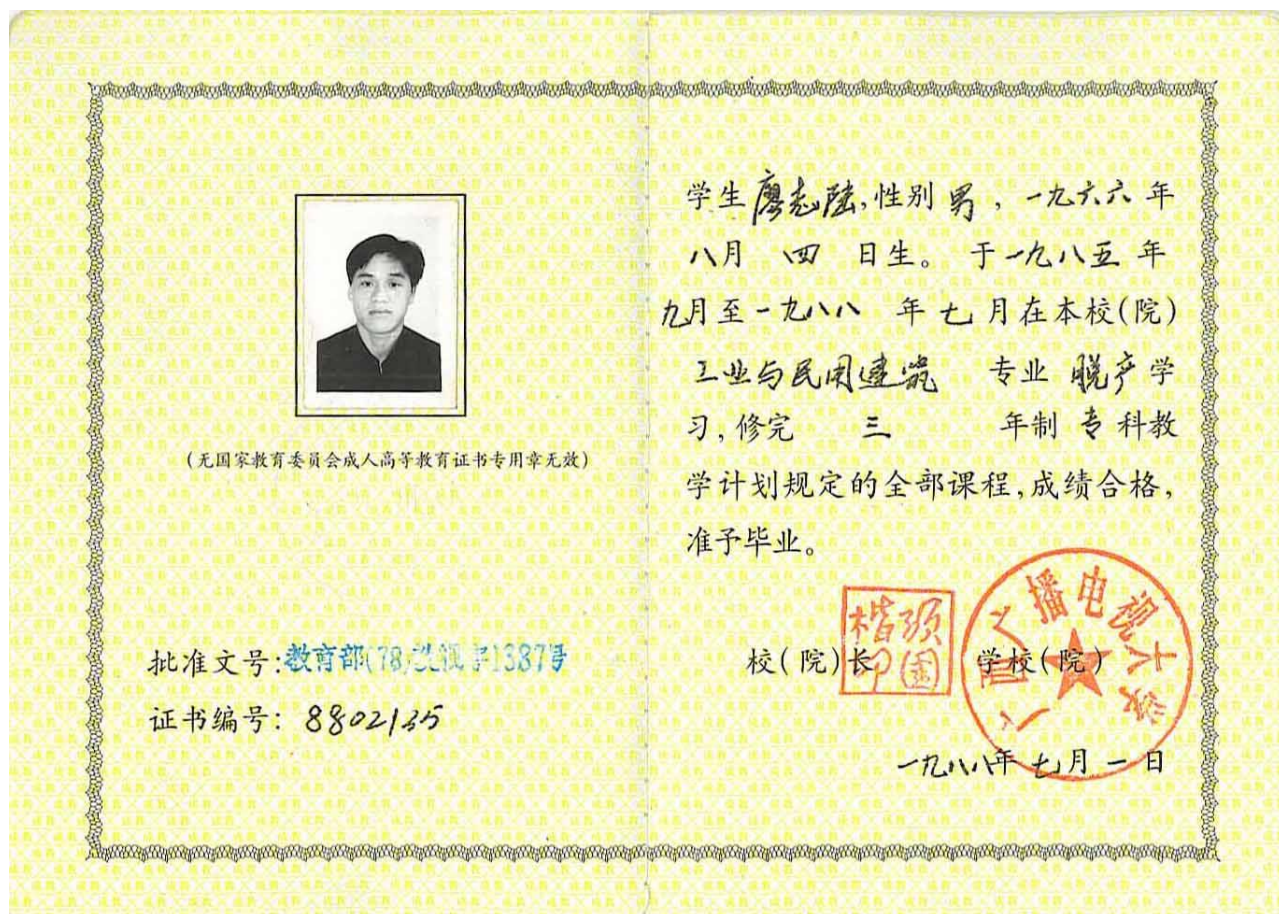 (无国家教育委员会成人高等教育证书专用章无效)
批准文号:教育部(78)字1387号
证书编号: 8802135
学生廖志陆,性别 男 , 一九六六 年
八月 四 日生。 于一九八五 年
九月至一九八八 年 七 月在本校(院)
工业与民用建筑 专业 脱产 学
习,修完 三 年制 专 科教
学计划规定的全部课程,成绩合格,
准予毕业。
校(院)长 学校(院)
广西广播电视大学
一九八八年 七月 一 日